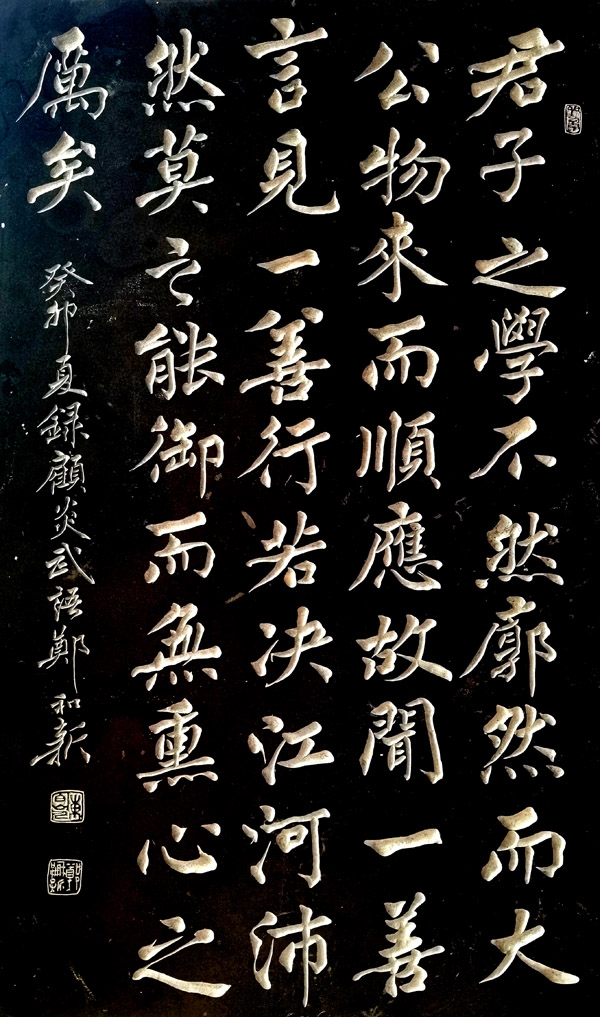 君子之學不然廓然而大
公物來而順應故聞一善
言見一善行若决江河沛
然莫之能御而無熏心之
厲矣
癸卯夏録顧炎武語鄭和新